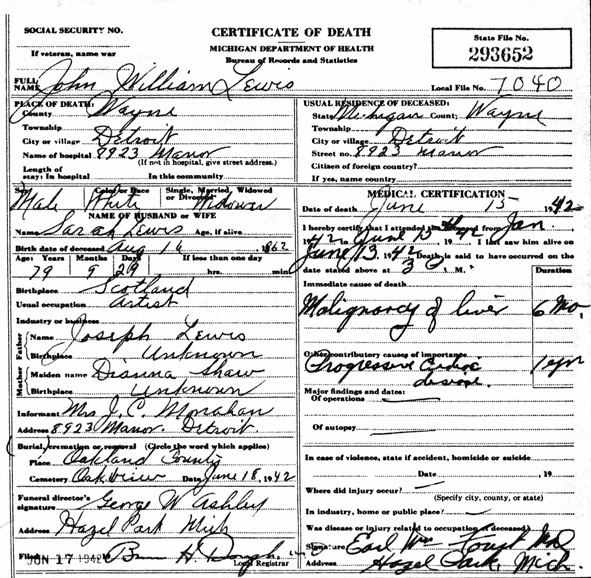 SOCIAL SECURITY NO.
If veteran, name war
CERTIFICATE OF DEATH
MICHIGAN DEPARTMENT OF HEALTH
Bureau of Records and Statistics
State File No.
293652
FULL NAME John William Lewis
Local File No. 7040
PLACE OF DEATH:
County Wayne
Township
City or village Detroit
Name of hospital 8923 Manor
(If not in hospital, give street address.)
Length of
stay: In hospital In this community
USUAL RESIDENCE OF DECEASED:
State Michigan County Wayne
Township
City or village Detroit
Street no. 8923 Manor
Citizen of foreign country?
If yes, name country
Sex Color or Race Single, Married, Widowed or Divorced
Male White Widower
NAME OF HUSBAND OR WIFE
Name Sarah Lewis Age, if alive
Birth date of deceased Aug 16 1862
Age: Years Months Days If less than one day
79 9 29 hrs. min.
Birthplace Scotland
Usual occupation Artist
Industry or business
Father
Name Joseph Lewis
Birthplace Unknown
Mother
Maiden name Dianna Shaw
Birthplace Unknown
Informant Mrs J. C. Monahan
Address 8923 Manor Detroit
Burial, cremation or removal (Circle the word which applies)
Place Oakland County
Cemetery Oakview Date June 18, 1942
Funeral director's
signature George W Ashley
Address Hazel Park Mich
Filed JUN 17 1942
Local Registrar
MEDICAL CERTIFICATION
Date of death June 15 1942
I hereby certify that I attended the deceased from Jan.
1942 to June 15 1942 I last saw him alive on
June 13, 1942 Death is said to have occurred on the
date stated above at 3 M.
Immediate cause of death Duration
Malignancy of liver 6 Mo.
Other contributory causes of importance
Progressive Cardiac 1 yr
disease
Major findings and dates:
Of operations
Of autopsy
In case of violence, state if accident, homicide or suicide
Date 19
Where did injury occur?
(Specify city, county, or state)
In industry, home or public place?
Was disease or injury related to occupation of deceased?
Signature Earl Wm Foust MD
Address Hazel Park, Mich.